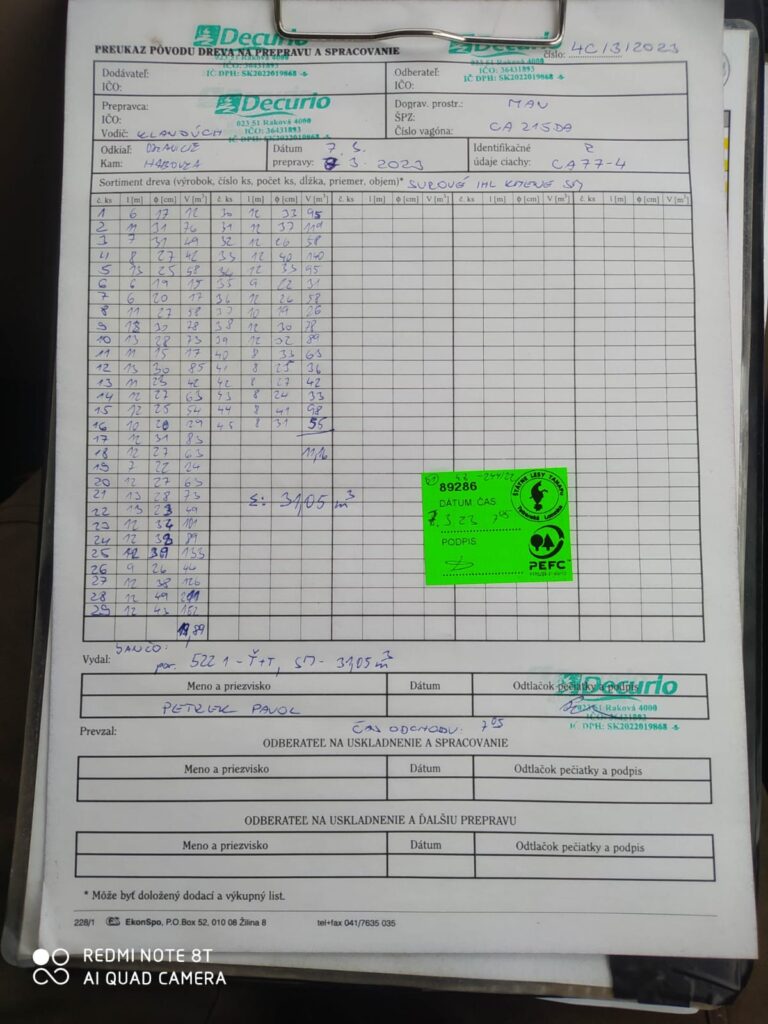 Decurio
PREUKAZ PÔVODU DREVA NA PREPRAVU A SPRACOVANIE
číslo: 4C/3/2023
023 51 Raková 4000
IČO: 36431893
IČ DPH: SK2022019868
Dodávateľ:
IČO:
Odberateľ:
IČO:
IČO: 36431893
IČ DPH: SK2022019868
Prepravca:
IČO:
Vodič:
Decurio
023 51 Raková 4000
IČO: 36431893
IČ DPH: SK2022019868
Doprav. prostr.: MAN
ŠPZ:
Číslo vagóna: CA 215DA
Odkiaľ:
Kam: HABOVKA
Dátum
prepravy: 7. 3. 2023
Identifikačné
údaje ciachy: CA77-4
Sortiment dreva (výrobok, číslo ks, počet ks, dĺžka, priemer, objem)* SUROVÉ IHL KMENE SM
č. ks l [m] ϕ [cm] V [m³] č. ks l [m] ϕ [cm] V [m³] č. ks l [m] ϕ [cm] V [m³] č. ks l [m] ϕ [cm] V [m³]
1 6 17 12 30 12 33 95
2 11 31 76 31 12 37 119
3 7 31 49 32 12 26 58
4 8 27 42 33 12 40 140
5 13 25 58 34 12 33 95
6 6 19 15 35 9 22 31
7 6 20 17 36 12 26 58
8 11 27 58 37 10 19 26
9 13 30 78 38 12 30 78
10 13 28 73 39 12 32 89
11 11 15 17 40 8 33 63
12 13 30 85 41 8 25 36
13 11 23 42 42 8 27 42
14 12 27 63 43 8 24 33
15 12 25 54 44 8 41 98
16 10 20 29 45 8 31 55
17 12 31 83
18 12 27 63 11,16
19 7 22 24
20 12 27 63
21 13 28 73
Σ: 31,05 m³
22 13 23 49
23 12 34 101
24 12 38 89
25 12 39 133
26 9 26 44
27 12 38 126
28 12 49 211
29 12 43 162
19,89
89286
DÁTUM ČAS
7.3.23 7⁰⁵
PODPIS
ŠTÁTNE LESY TANAPU
Tatranská Lomnica
PEFC
Vydal:
por. 522 1 - Ť+T, SM - 31,05 m³
Meno a priezvisko Dátum Odtlačok pečiatky a podpis
PETREK PAVOL
Decurio
023 51 Raková 4000
IČO: 36431893
IČ DPH: SK2022019868
Prevzal:
ČAS ODCHODU: 7⁰⁵
ODBERATEĽ NA USKLADNENIE A SPRACOVANIE
Meno a priezvisko Dátum Odtlačok pečiatky a podpis
ODBERATEĽ NA USKLADNENIE A ĎALŠIU PREPRAVU
Meno a priezvisko Dátum Odtlačok pečiatky a podpis
* Môže byť doložený dodací a výkupný list.
228/1 EkonSpo, P.O.Box 52, 010 08 Žilina 8 tel+fax 041/7635 035
REDMI NOTE 8T
AI QUAD CAMERA